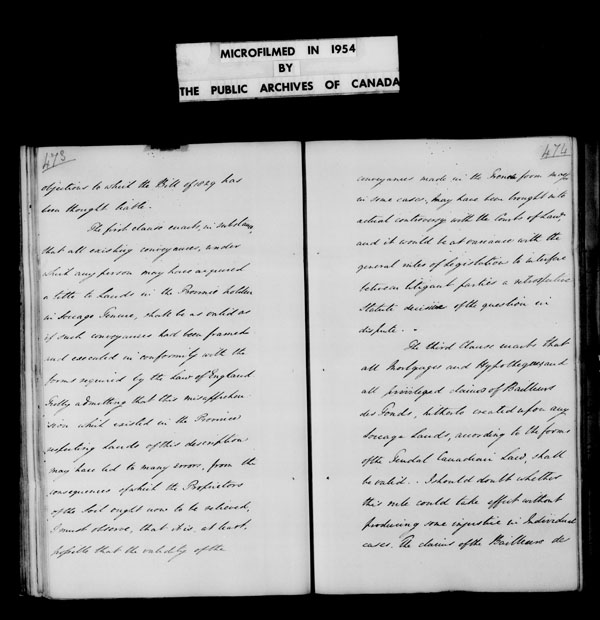 MICROFILMED IN 1954
BY
THE PUBLIC ARCHIVES OF CANADA
473
objections to which the Bill of 1829 has
been thought liable.
The first clause enacts, in substance,
that all existing conveyances, under
which any person may have acquired
a title to Lands in the Province holden
in Socage Tenure, shall be as valid as
if such conveyances had been framed
and executed in conformity with the
forms required by the Law of England
Fully admitting that this misapprehen
sion which existed in the Province
respecting Lands of this description
may have led to many errors, from the
consequences of which the Proprietors
of the Soil ought now to be relieved,
I must observe, that it is, at least,
possible that the validity of the
474
conveyances made in the French form may
in some cases, may have been brought into
actual controversy with the Courts of Law
and it would be at variance with the
general rules of legislation to interfere
between litigant parties a retrospective
Statute decisive of the question in
dispute.
The third Clause enacts that
all Mortgages and Hypotheques and
all privileged claims of Bailleurs
des Fonds, hitherto created upon any
Socage Lands, according to the forms
of the Feudal Canadian Law, shall
be valid. I should doubt whether
this rule could take effect without
producing some injustice in Individual
cases. The claims of the Bailleurs des